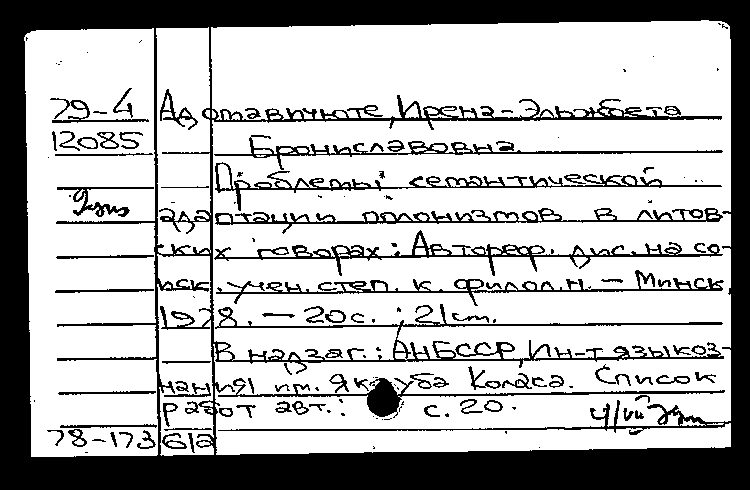 79-4 Адомавичюте, Ирена-Эльжбета
12085 Брониславовна.
Проблемы семантической
адаптации полонизмов в литов-
ских говорах: Автореф. дис. на со-
иск. учен. степ. к. филол. н. — Минск,
1978. — 20 с. ; 21 см.
В надзаг.: АН БССР, Ин-т языкоз-
нания им. Якуба Коласа. Список
работ авт.: с. 20.
78-173612